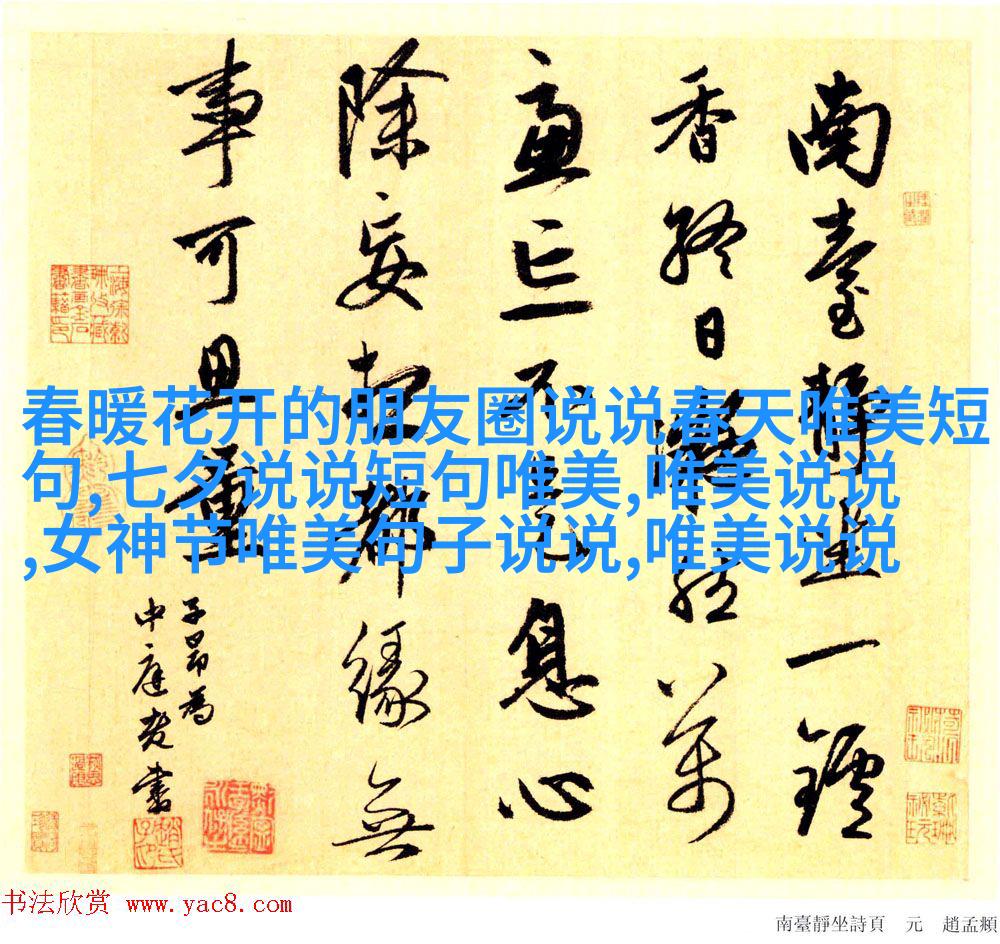 南臺靜坐一鑪
香終日凝然萬
慮亡不是息心
除妄想都緣無
事可思量
子昂為
中庭老書
春暖花开的朋友圈说说春天唯美短
句,七夕说说短句唯美,唯美说说
,女神节唯美句子说说,唯美说说
书法欣赏 www.yac8.com
南臺靜坐詩頁 元 趙孟頫